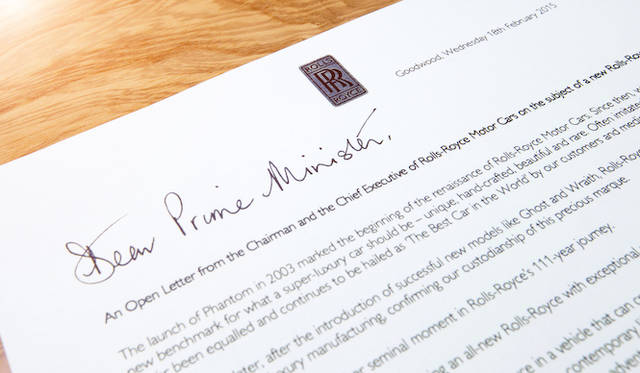 Goodwood, Wednesday 18th February 2015
ROLLS
RR
ROYCE
Dear Prime Minister,
An Open Letter from the Chairman and the Chief Executive of Rolls-Royce Motor Cars on the subject of a new Rolls-Roy
The launch of Phantom in 2003 marked the beginning of the renaissance of Rolls-Royce Motor Cars. Since then,
new benchmark for what a super-luxury car should be – unique, hand-crafted, beautiful and rare. Often imitate
been equalled and continues to be hailed as 'The Best Car in the World' by our customers and medi
later, after the introduction of successful new models like Ghost and Wraith, Rolls-Royc
xury manufacturing, confirming our custodianship of this precious marque.
er seminal moment in Rolls-Royce's 111-year journey.
ing an all-new Rolls-Royce with exceptional
ce in a vehicle that can